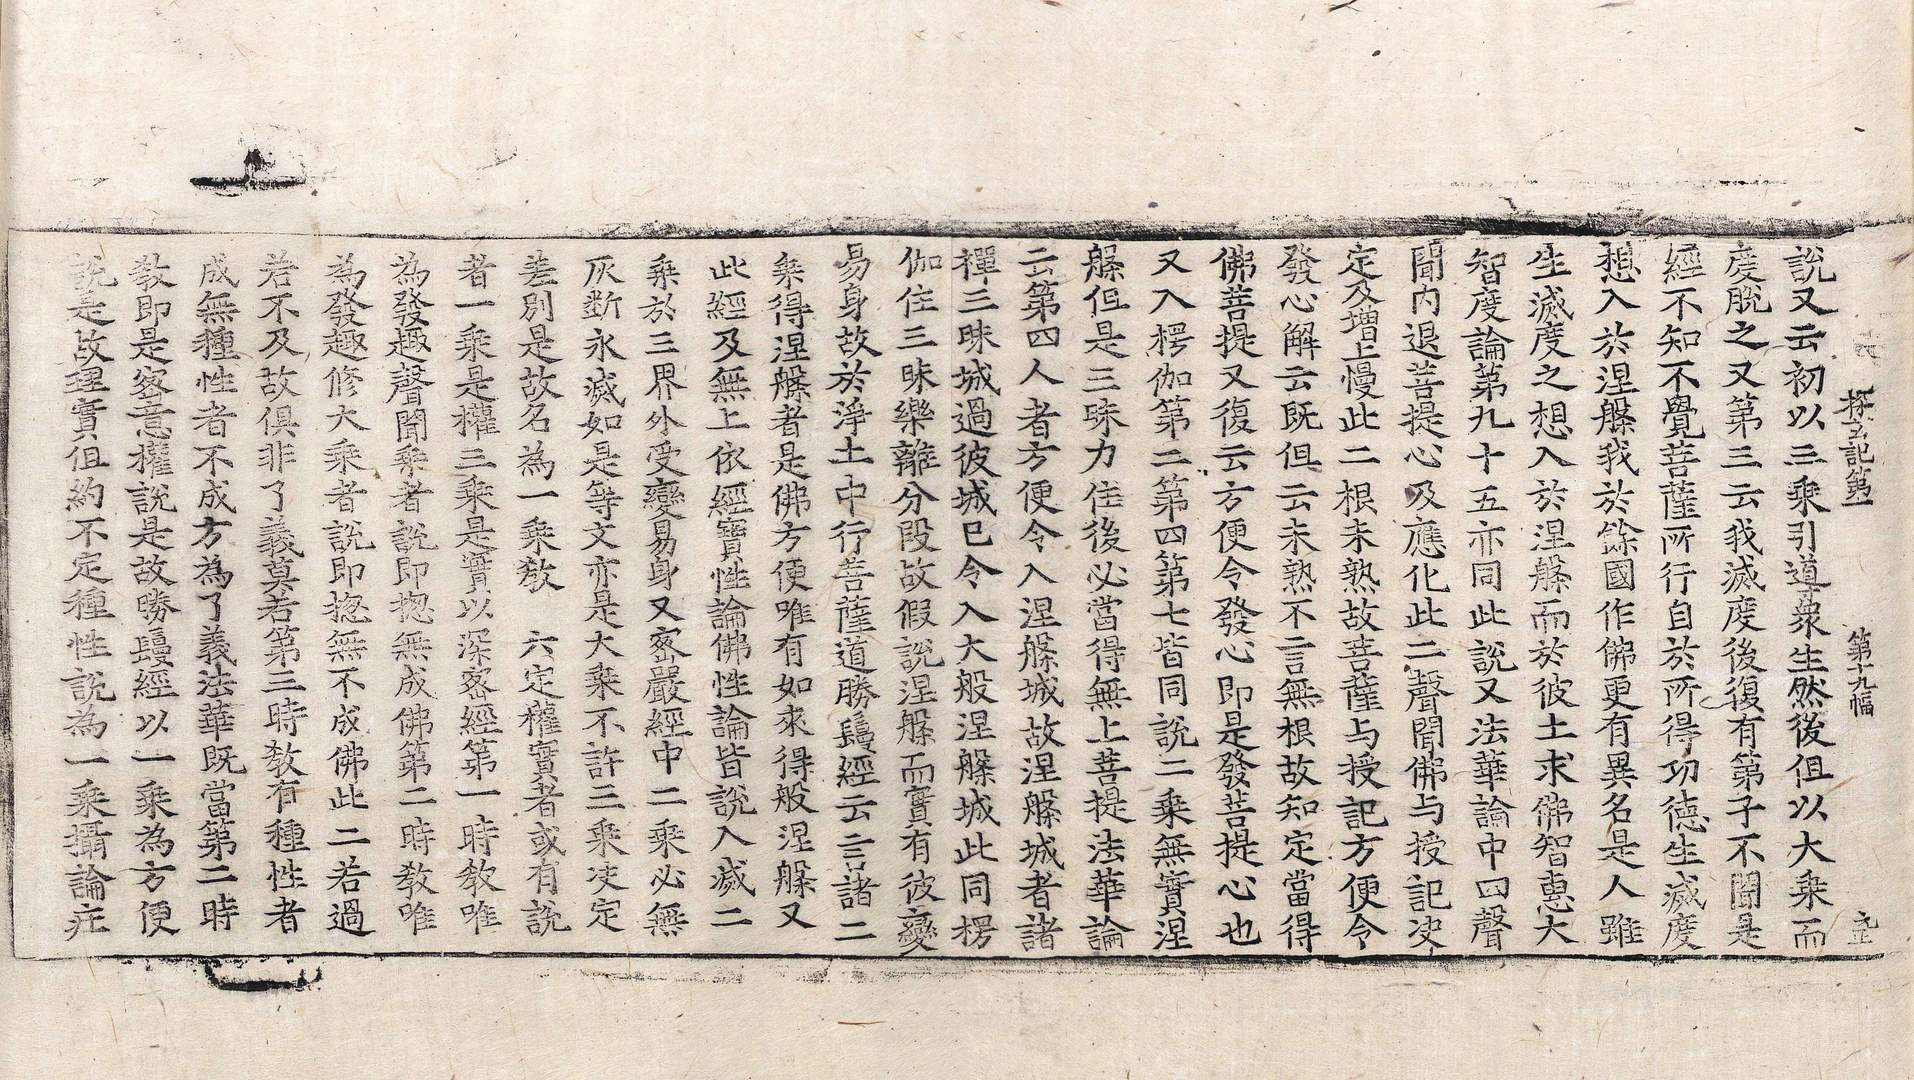 探玄記第一　第十九幅
說又云初以三乘引導衆生然後但以大乘而
度脫之又第三云我滅度後復有第子不聞是
經不知不覺菩薩所行自於所得功德生滅度
想入於涅槃我於餘國作佛更有異名是人雖
生滅度之想入於涅槃而於彼土求佛智惠大
智度論第九十五亦同此說又法華論中四聲
聞內退菩提心及應化此二聲聞佛与授記决
定及增上慢此二根未熟故菩薩与授記方便令
發心解云旣但云未熟不言無根故知定當得
佛菩提又復云方便令發心即是發菩提心也
又入楞伽第二第四第七皆同說二乘無實涅
槃但是三昧力住後必當得無上菩提法華論
云第四人者方便令入涅槃城故涅槃城者諸
禪三昧城過彼城已令入大般涅槃城此同楞
伽住三昧樂離分段故假說涅槃而實有彼變
易身故於淨土中行菩薩道勝鬘經云言諸二
乘得涅槃者是佛方便唯有如來得般涅槃又
此經及無上依經寶性論佛性論皆說入滅二
乘於三界外受變易身又密嚴經中二乘必無
灰斷永滅如是等文亦是大乘不許二乘决定
差別是故名為一乘敎　六定權實者或有說
者一乘是權三乘是實以深密經第一時敎唯
為發趣聲聞乘者說即揔無成佛第二時敎唯
為發趣修大乘者說即揔無不成佛此二若過
若不及故俱非了義莫若第三時敎有種性者
成無種性者不成方為了義法華旣當第二時
敎即是密意權說是故勝鬘經以一乘為方便
說是故理實但約不定種性說為一乘攝論疏